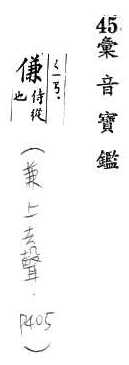 45.彙音寶鑑
ㄑㄧㄢˋ
傔 侍從也
(兼上去聲. P405)